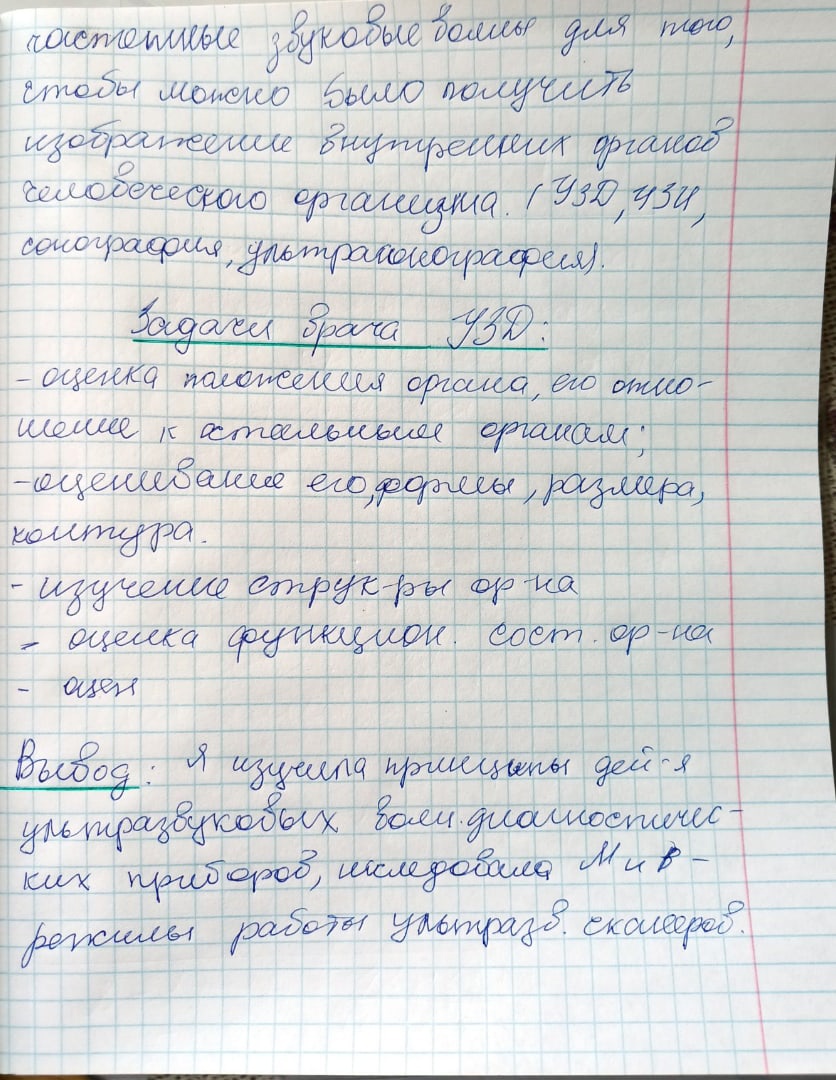 частотные звуковые волны для того,
чтобы можно было получить
изображение внутренних органов
человеческого организма. (УЗД, УЗИ,
сонография, ультрасонография).
Задачи врача УЗД:
- оценка положения органа, его отно-
шение к остальным органам;
- оценивание его, формы, размера,
контура.
- изучение струк-ры ор-на
- оценка функцион. сост. ор-на
- оцен
Вывод: Я изучила принципы дей-я
ультразвуковых волн. диагностичес-
ких приборов, исследовала М и В -
режимы работы ультразв. сканеров.